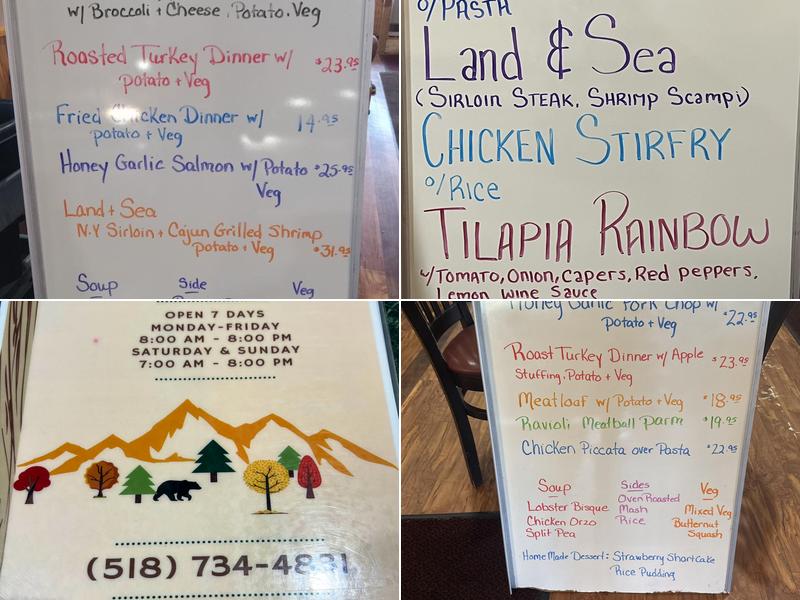 w/ Broccoli + Cheese, Potato, Veg
Roasted Turkey Dinner w/ $23.95
potato + Veg
Fried Chicken Dinner w/ 14.95
potato + Veg
Honey Garlic Salmon w/ Potato $25.95
Veg
Land + Sea
N.Y Sirloin + Cajun Grilled Shrimp
potato + Veg $31.95
Soup Side Veg
o/PASTA
Land & Sea
(SIRLOIN STEAK, SHRIMP Scampi)
CHICKEN STIRFRY
o/Rice
TILAPIA RAINBOW
w/TOMATO, ONION, CAPERS, Red peppers,
Lemon wine Sauce
OPEN 7 DAYS
MONDAY-FRIDAY
8:00 AM - 8:00 PM
SATURDAY & SUNDAY
7:00 AM - 8:00 PM
(518) 734-4831
Honey Garlic Pork Chop w/ $22.95
Potato + Veg
Roast Turkey Dinner w/ Apple $23.95
Stuffing, Potato + Veg
Meatloaf w/ Potato + Veg $18.95
Ravioli Meatball Parm $19.95
Chicken Piccata over Pasta $22.95
Soup Sides Veg
Lobster Bisque Oven Roasted Mixed Veg
Chicken Orzo Mash Butternut
Split Pea Rice Squash
Home Made Dessert: Strawberry Shortcake
Rice Pudding